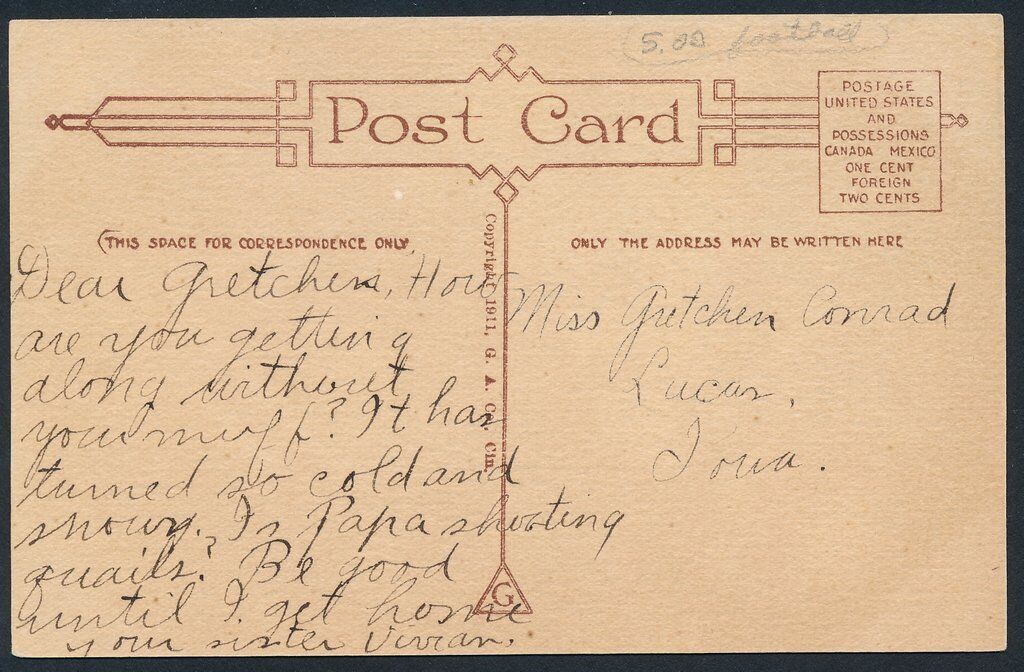 5.00 football
Post Card
POSTAGE
UNITED STATES
AND
POSSESSIONS
CANADA MEXICO
ONE CENT
FOREIGN
TWO CENTS
(THIS SPACE FOR CORRESPONDENCE ONLY
Dear Gretchen, How
are you getting
along without
your muff? It has
turned so cold and
snowy. Is Papa shooting
quails? Be good
until I get home
your sister Vivian.
Copyright 1911, G. A. Co. Cin.
G
ONLY THE ADDRESS MAY BE WRITTEN HERE
Miss Gretchen Conrad
Lucas,
Iowa.